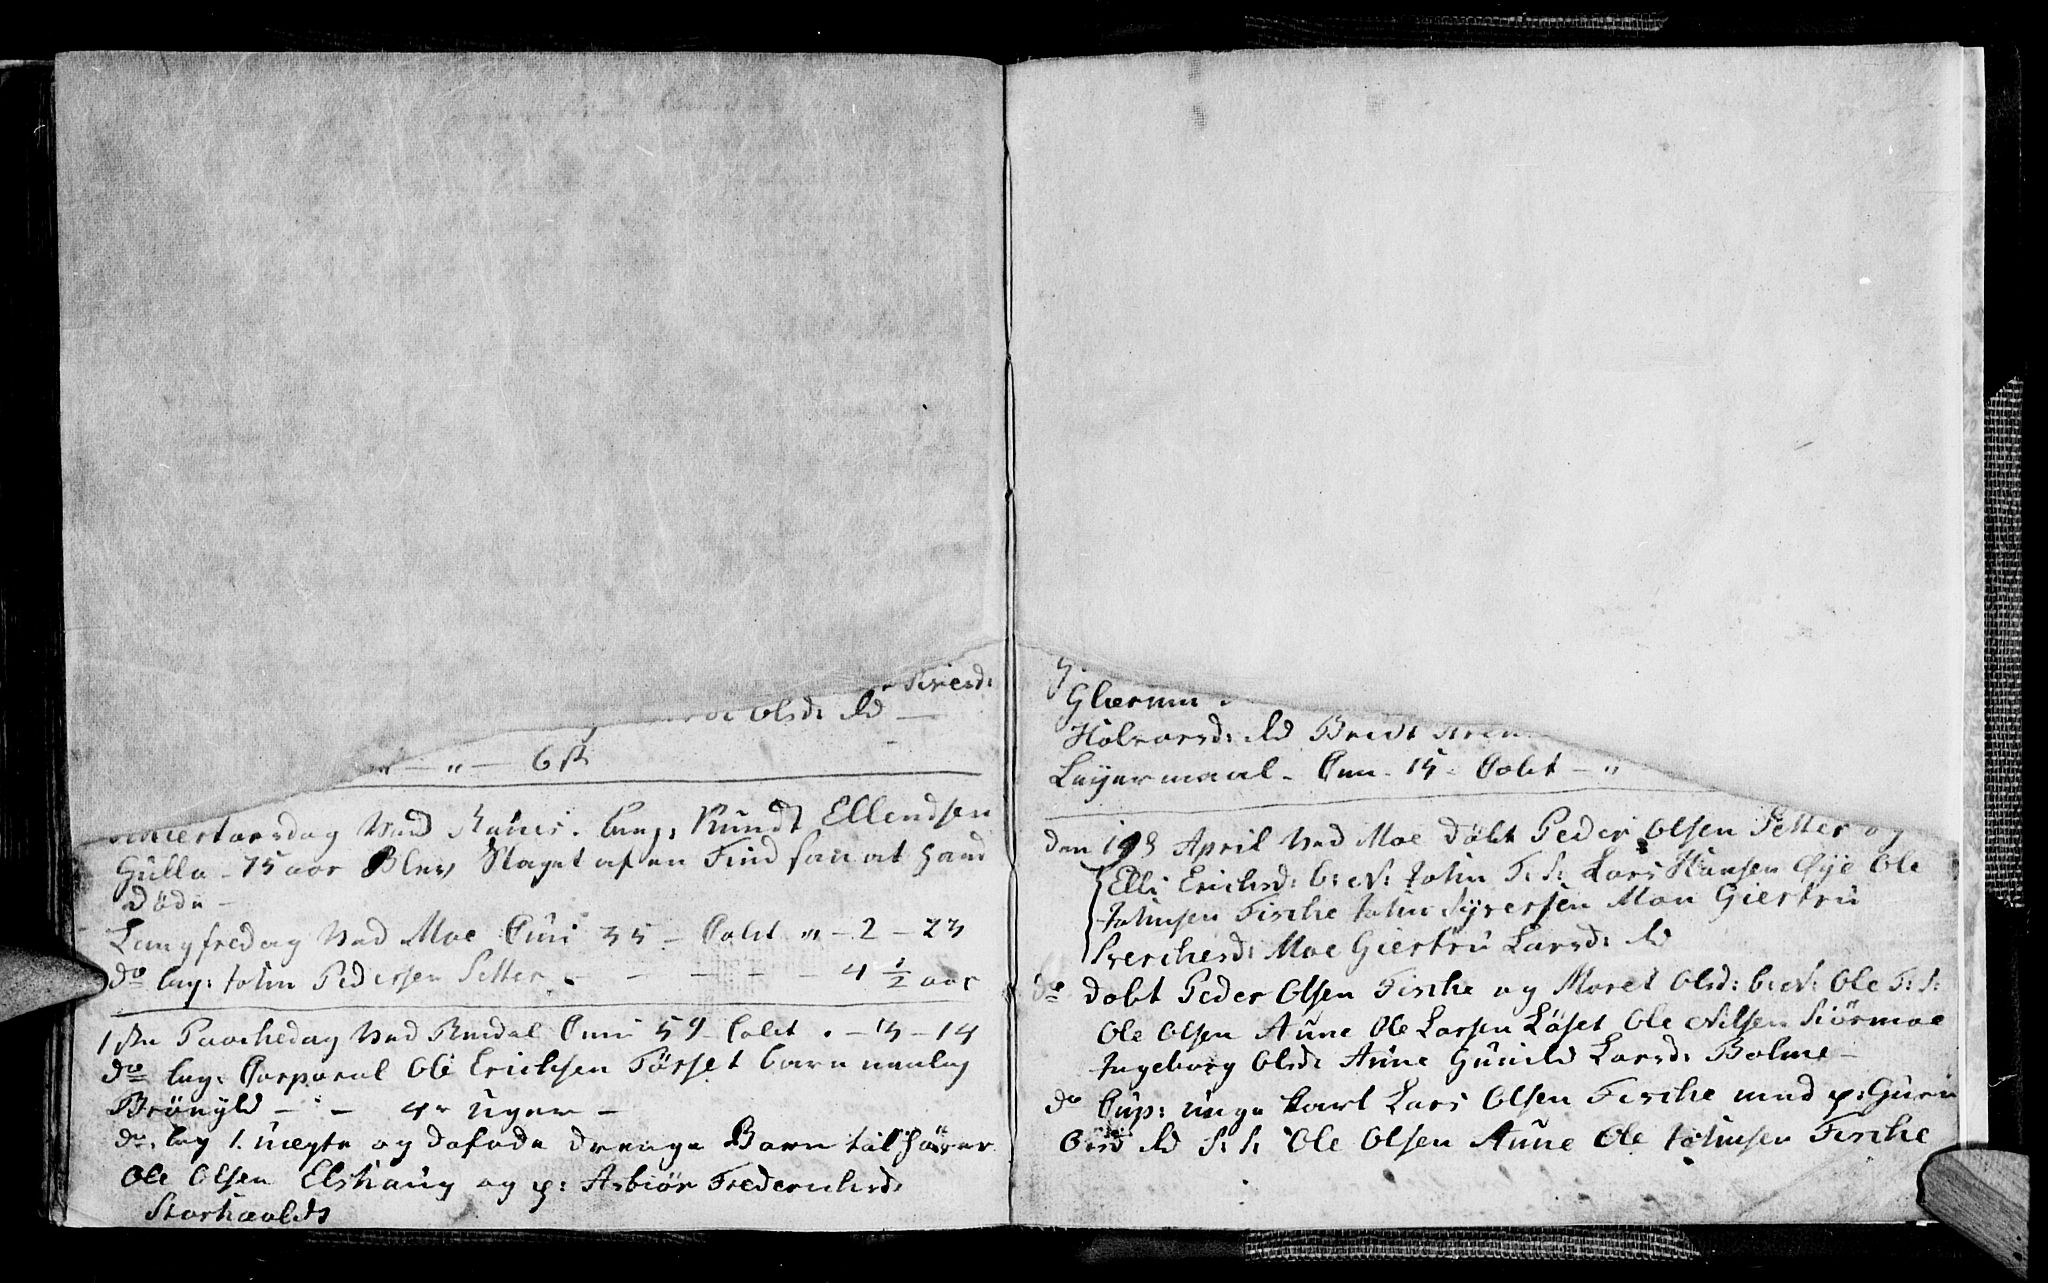 Olsd: ibd —
— „ — 6 ß
Skiertorsdag ved Ranes. beg: Knudt Ellendsen
Gulla - 75 aar Blev Slaget af en Find saa at hand
Døde —
Langfredag ved Moe Com 35 — Colct „ - 2 - 23
do beg: John Pedersen Setter - — — — — 4 1/2 aar
1ste Paaskedag ved Rindal Com 59 Colct . - 3 - 14
do beg: Corporal Ole Erichsen Tørset barn nemlig
Brønyld — — 4r Uger —
do beg 1. uægte og dødføde Drenge Barn tilhører
Ole Olsen Elshaug og p: Asbiør Frederichsd:
Glærum
Halvorsd: ibd Beret
Leyermaal - Com - 15 - Colct — „
den 193 April ved Moe døbt Peder Olsen Setter og
Elli Erichsd: b: N: John F: S: Lars Hansen Øye Ole
Johnsen Fiske John Syversen Moe Giertru
Sverchesd: Moe Giertru Larsd: ibd
do døbt Peder Olsen Fiske og Maret Olsd: b: N: Ole F: S:
Ole Olsen Aune Ole Larsen Løset Ole Nilsen Skørmoe
Ingeborg Olsd: Aune Gunild Larsd: Bolme —
do Cup: unge karl Lars Olsen Fiske med p: Guru
Olsd ibd S: S: Ole Olsen Aune Ole Johnsen Fiske